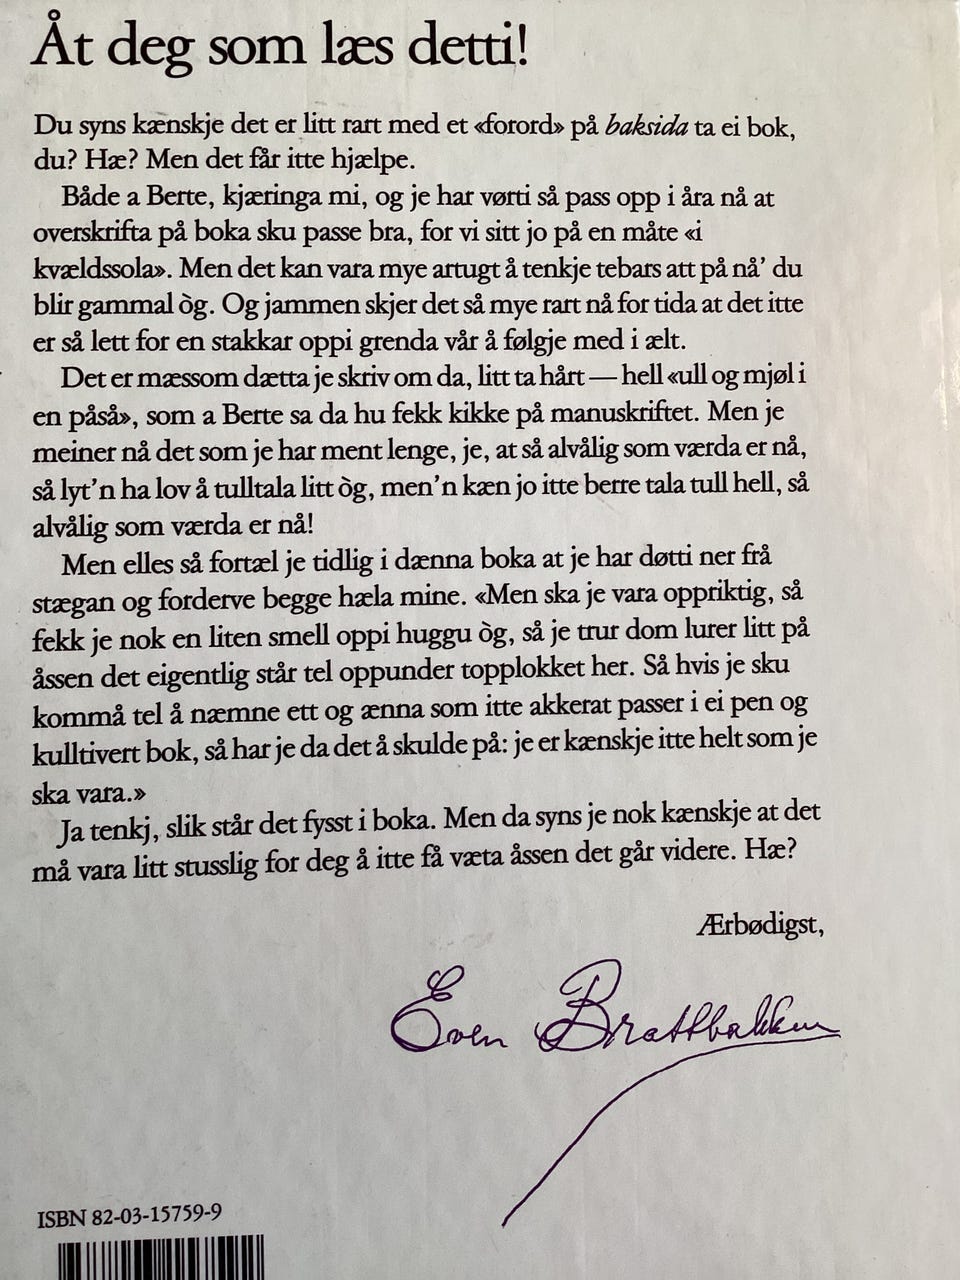 Åt deg som læs detti!
Du syns kænskje det er litt rart med et «forord» på baksida ta ei bok,
du? Hæ? Men det får itte hjælpe.
Både a Berte, kjæringa mi, og je har vørti så pass opp i åra nå at
overskrifta på boka sku passe bra, for vi sitt jo på en måte «i
kvældssola». Men det kan vara mye artugt å tenkje tebars att på nå’ du
blir gammal òg. Og jammen skjer det så mye rart nå for tida at det itte
er så lett for en stakkar oppi grenda vår å følgje med i ælt.
Det er mæssom dætta je skriv om da, litt ta hårt — hell «ull og mjøl i
en påså», som a Berte sa da hu fekk kikke på manuskriftet. Men je
meiner nå det som je har ment lenge, je, at så alvålig som værda er nå,
så lyt’n ha lov å tulltala litt òg, men’n kæn jo itte berre tala tull hell, så
alvålig som værda er nå!
Men elles så fortæl je tidlig i dænna boka at je har døtti ner frå
stægan og forderve begge hæla mine. «Men ska je vara oppriktig, så
fekk je nok en liten smell oppi huggu òg, så je trur dom lurer litt på
åssen det eigentlig står tel oppunder topplokket her. Så hvis je sku
kommå tel å næmne ett og ænna som itte akkerat passer i ei pen og
kulltivert bok, så har je da det å skulde på: je er kænskje itte helt som je
ska vara.»
Ja tenkj, slik står det fysst i boka. Men da syns je nok kænskje at det
må vara litt stusslig for deg å itte få væta åssen det går videre. Hæ?
Ærbødigst,
Even Brattbakken
ISBN 82-03-15759-9